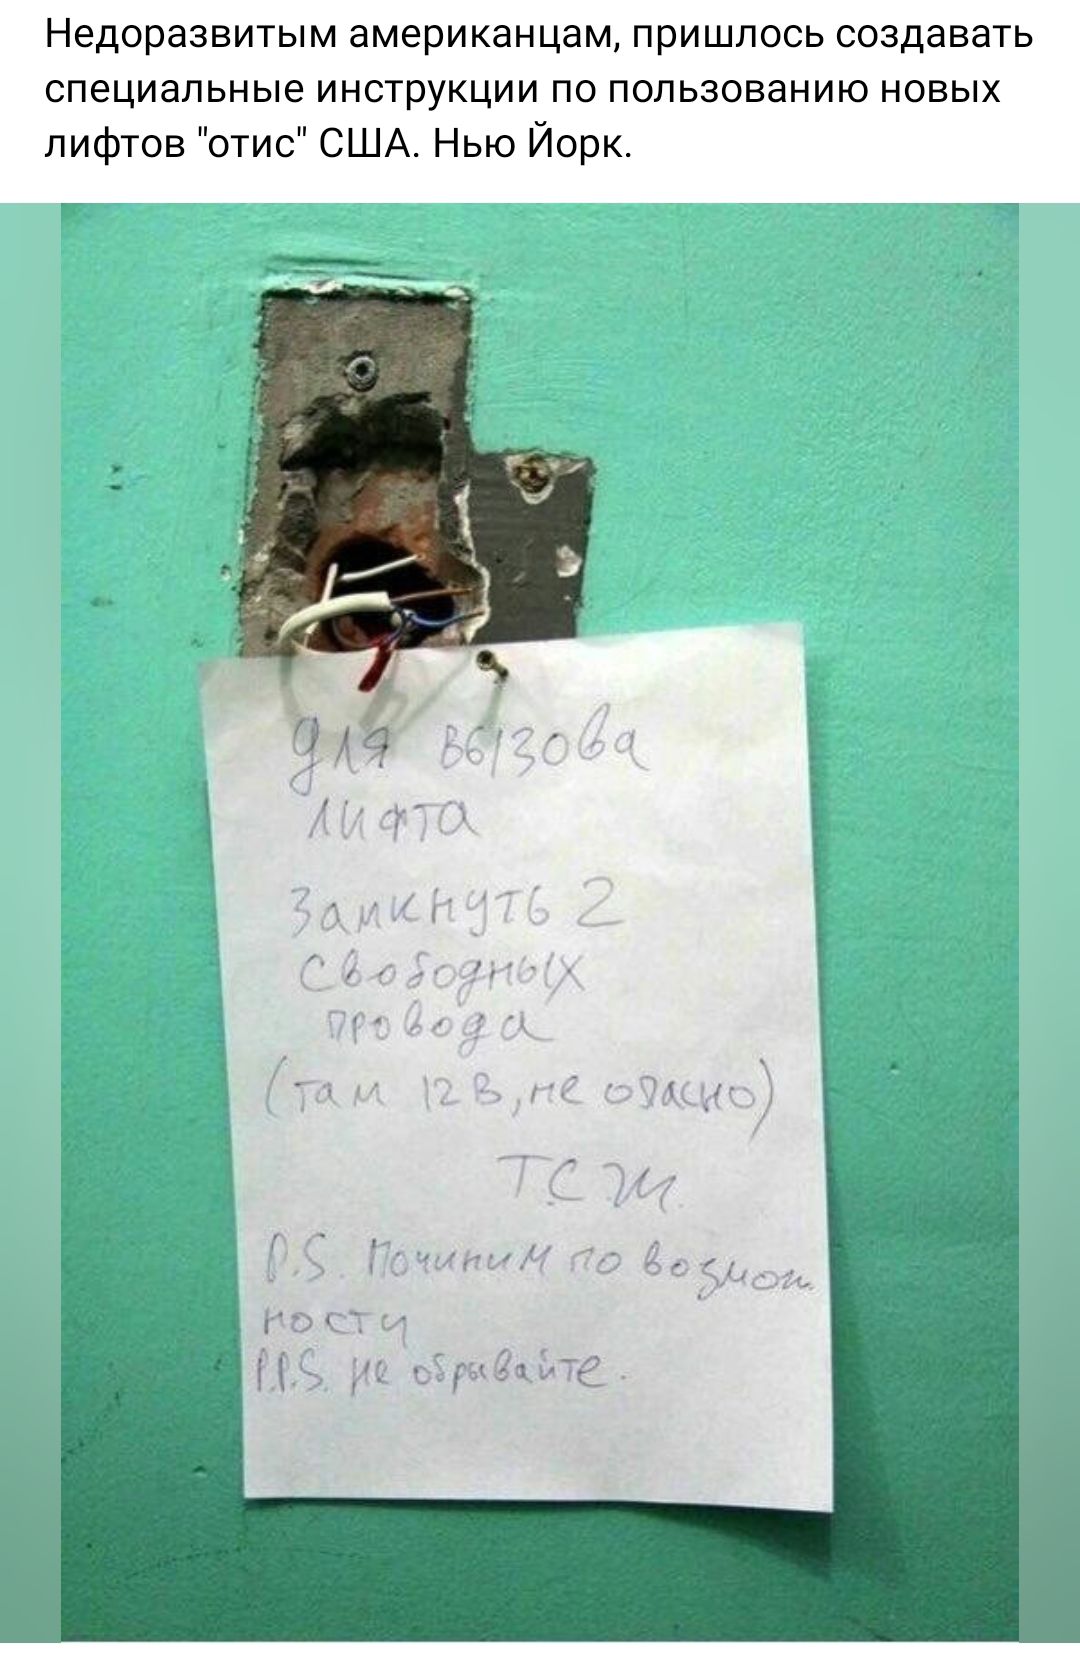 Недоразвитым американцам, пришлось создавать
специальные инструкции по пользованию новых
лифтов "отис" США. Нью Йорк.
Для вызова
лифта
Замкнуть 2
свободных
провода
(там 12В, не опасно)
ТСЖ.
P.S. Починим по возмож
ности
P.P.S. не обрывайте.